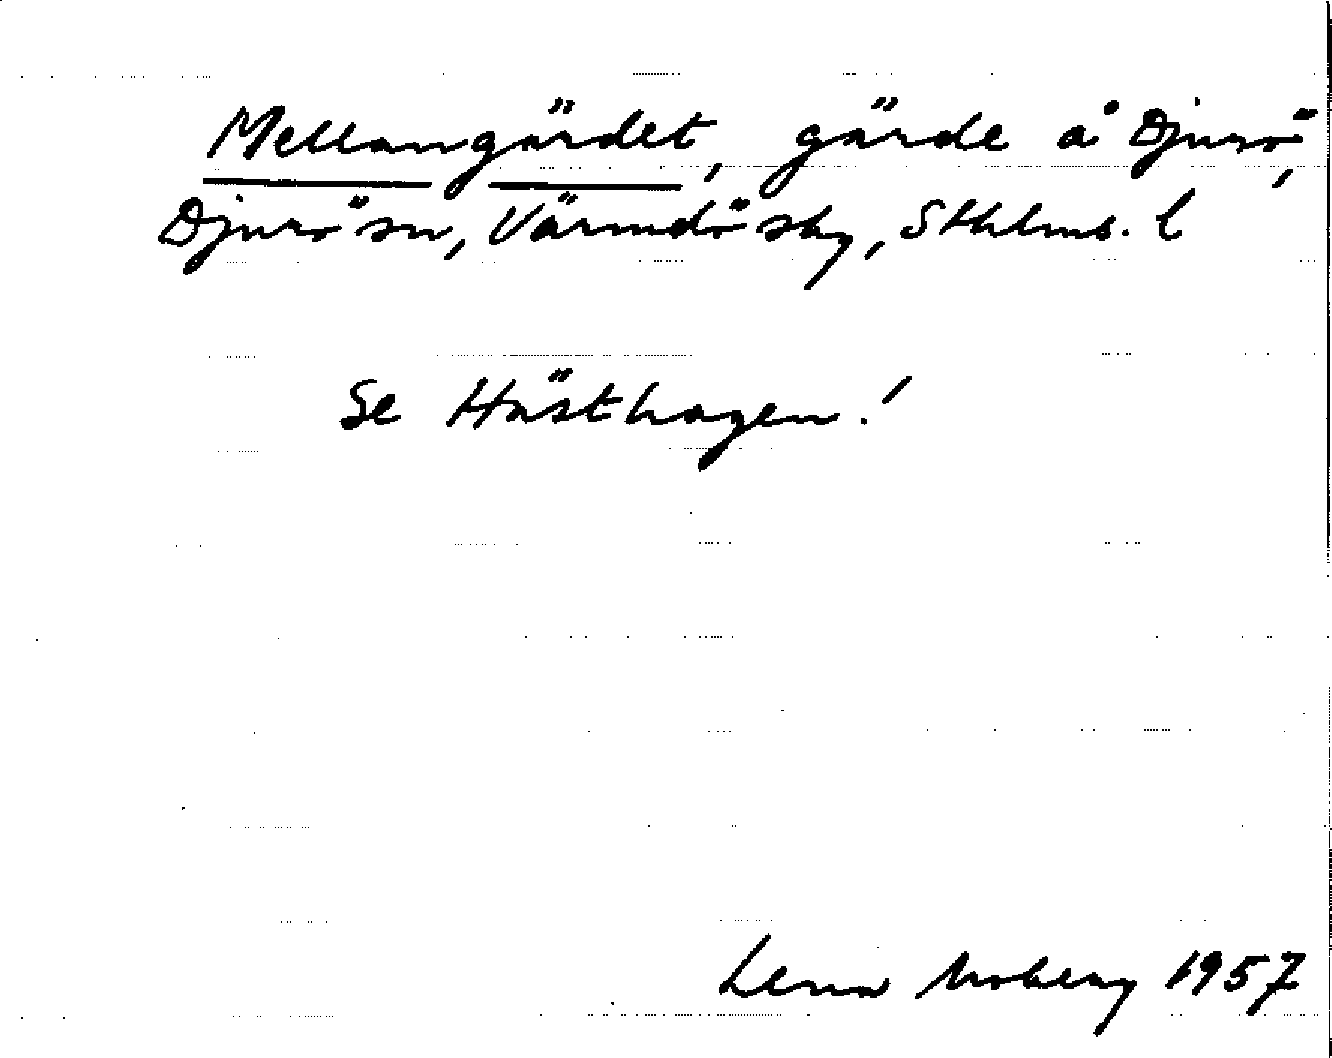 Mellangärdet, gärde å Djurö,
Djurö sn, Värmdö sky, Sthlms. l
Se Hästhagen!
Lena Moberg 1957